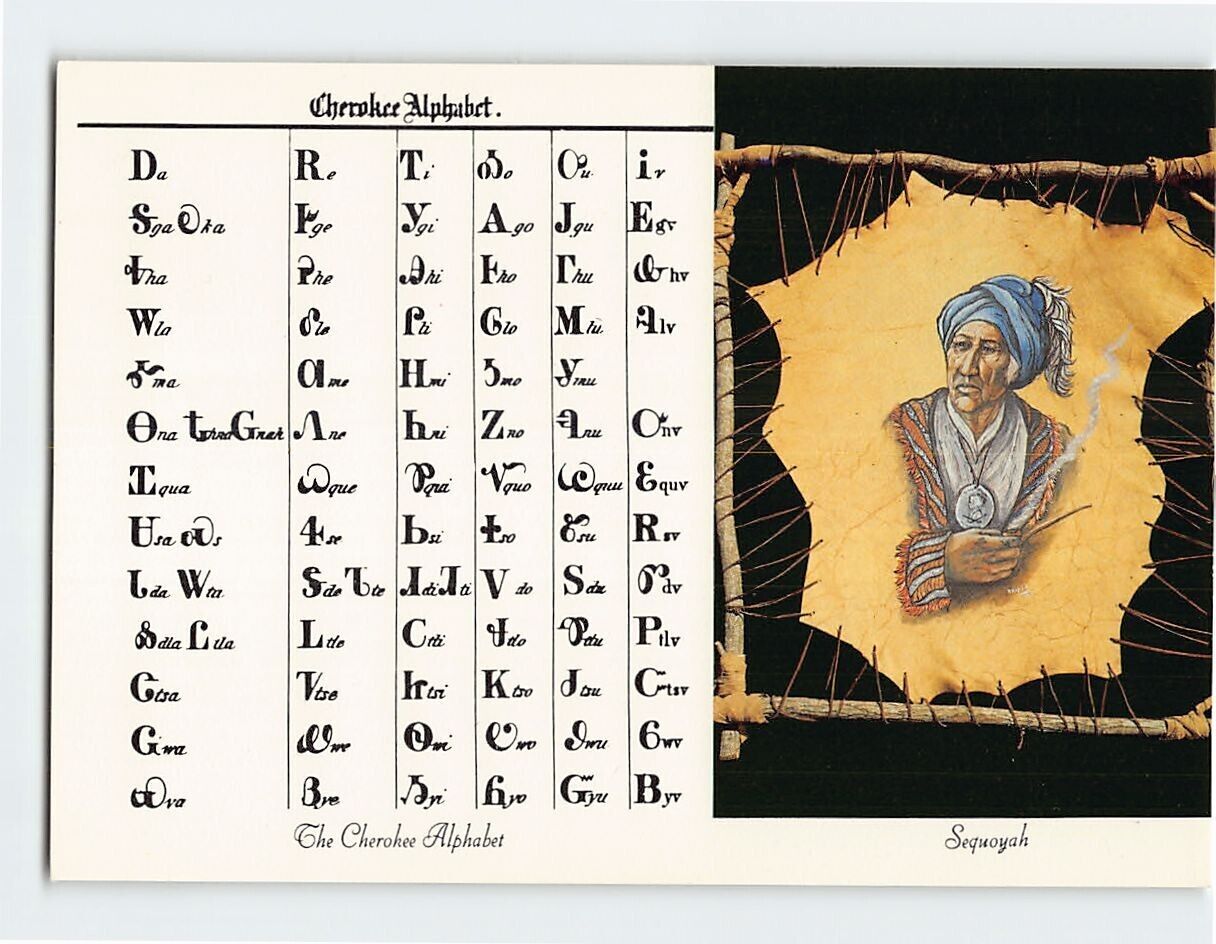 Cherokee Alphabet.
Ꭰa Ꭱe Ꭲi Ꭳo Ꭴu Ꭵv
Ꭶga Ꭷka Ꭸge Ꭹgi Ꭺgo Ꭻgu Ꭼgv
Ꭽha Ꭾhe Ꭿhi Ꮀho Ꮁhu Ꮂhv
Ꮃla Ꮄle Ꮅli Ꮆlo Ꮇlu Ꮈlv
Ꮉma Ꮊme Ꮋmi Ꮌmo Ꮍmu
Ꮎna Ꮏhna Ꮐnah Ꮑne Ꮒni Ꮓno Ꮔnu Ꮕnv
Ꮖqua Ꮗque Ꮘqui Ꮙquo Ꮚquu Ꮛquv
Ꮜsa Ꮝs Ꮞse Ꮟsi Ꮠso Ꮡsu Ꮢsv
Ꮣda Ꮤta Ꮥde Ꮦte Ꮧdi Ꮨti Ꮩdo Ꮪdu Ꮫdv
Ꮬdla Ꮭtla Ꮮtle Ꮯtli Ꮰtlo Ꮱtlu Ꮲtlv
Ꮳtsa Ꮴtse Ꮵtsi Ꮶtso Ꮷtsu Ꮸtsv
Ꮹwa Ꮺwe Ꮻwi Ꮼwo Ꮽwu Ꮾwv
Ꮿya Ᏸye Ᏹyi Ᏺyo Ᏻyu Ᏼyv
The Cherokee Alphabet
Sequoyah